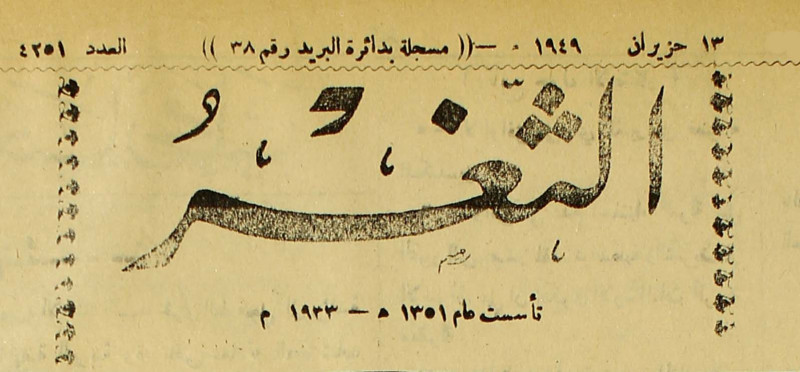 ١٣ حزيران ١٩٤٩ - —(( مسجلة بدائرة البريد رقم ٣٨ )) العدد ٤٢٥١
الثَّغْرُ
تأسست عام ١٣٥١ ه — ١٩٣٣ م